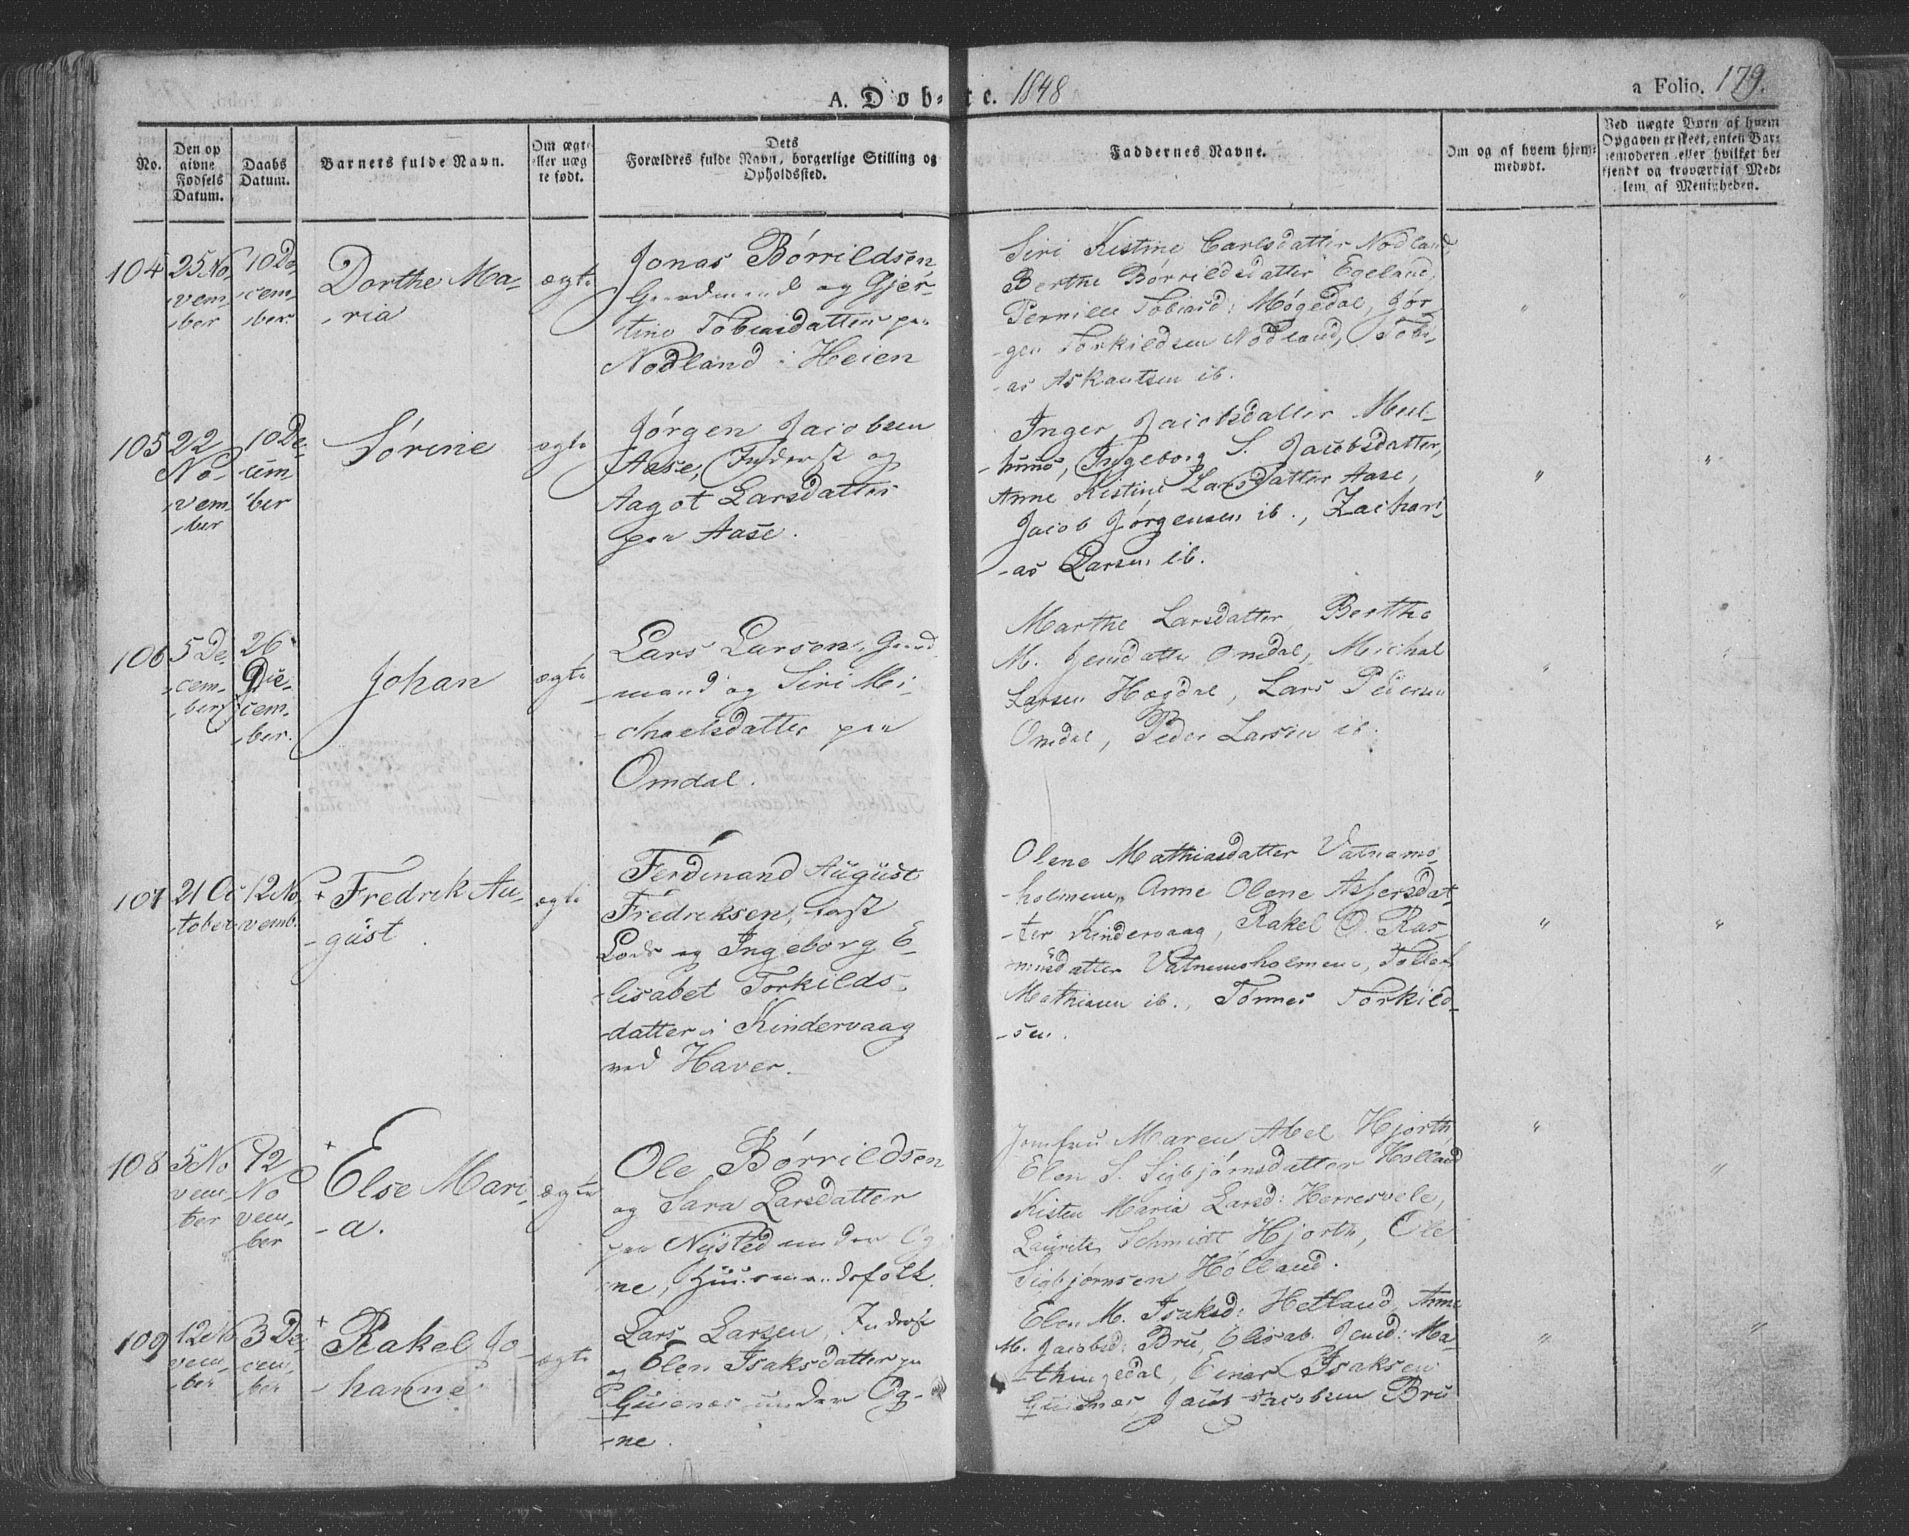 A. Døb-te. 1848
a Folio. 179.
No.
Den op
givne
Fødsels
Datum.
Daabs
Datum.
Barnets fulde Navn.
Om ægte
eller uæg
te født.
Dets
Forældres fulde Navn, borgerlige Stilling og
Opholdssted.
Faddernes Navne.
Om og af hvem hjem-
medøbt.
Ved uægte Børn af hvem
Opgaven er skeet, enten Bar-
nemoderen eller hvilket be
kjendt og troværdigt Med-
lem af Menigheden.
104
25 No
-vem
-ber
10 De
-cem-
-ber.
Dorthe Ma-
-ria
ægte
Jonas Börrildsen
Gaardmand og Gjer-
tine Tobiasdatter paa
Nodland i Heien
Siri Kistine Carlsdatter Nodland
Berthe Börrildsdatter Egeland,
Pernille Tobiasd: Møgedal, Jør-
-gen Torkildsen Nodland, Tobi-
-as Askautsen ib.
"
"
105
22
No
-vem
-ber
10 De-
-cem-
ber
Sørine
ægte
Jørgen Jacobsen
Aase, Inderst og
Aagot Larsdatter
paa Aase.
Inger Jacobsdatter
-huus, Ingeborg S. Jacobsdatter,
Anne Kistine Larsdatter Aase,
Jacob Jørgensen ib., Zachari-
-as Larsen ib.
"
"
106
5 De
-cem-
-ber
26
De-
-cem-
-ber.
Johan
ægte
Lars Larsen, Gaard
-mand og Siri Mi-
-chaelsdatter paa
Omdal.
Marthe Larsdatter, Berthe
M. Jensdatter Omdal, Michal
Larsen Hægdal, Lars Pedersen
Omdal, Peder Larsen ib.
"
"
107
21 Oc
-tober
12 No
-vemb.
+ Fredrik Au-
-gust.
ægte
Ferdinand August
Fredriksen, fast
Lods og Ingeborg E-
-lisabet Torkilds-
-datter i Kindervaag
ved Haver.
Olene Mathiasdatter Vatnems-
-holmen, Anne Olene Assersdat-
-ter Kindervaag, Rakel O. Ras-
-musdatter Vatnemsholmen, Tollak
Mathiasen ib., Tønnes Torkild-
-sen.
"
"
108
5 No
vem-
ber
12
No
vem-
ber
+
Else Mari-
-a.
ægte
Ole Börrildsen
og Sara Larsdatter
paa Nysted under Og-
-ne, Huusmandsfolk.
Jomfru Maren Abel Hjorth,
Elen S. Sigbjørnsdatter Holland
Kisten Maria Larsd: Herresvele,
Laurits Schmidt Hjorth, Ole
Sigbjørnsen Hølland.
"
"
109
12 No
vem-
ber
3 De-
cem-
ber
+
Rakel Jo-
-hanne
ægte
Lars Larsen, Inderst
og Elen Isaksdatter paa
under Og-
-ne.
Elen M. Isaksd: Hetland, Anne
M. Jacobsd: Bru, Elisab. Jensd: Ma-
Einar Isaksen
Jacob Jacobsen Bru
"
"